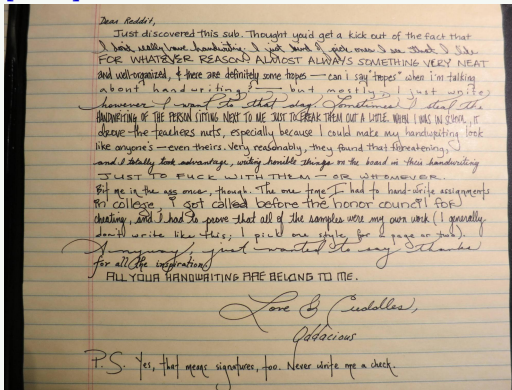 Dear Reddit,
Just discovered this sub. Thought you'd get a kick out of the fact that
I don't really have handwriting. I just kind of pick ones I see that I like
FOR WHATEVER REASON. ALMOST ALWAYS SOMETHING VERY NEAT
and well-organized, & there are definitely some tropes — can i say "tropes" when i'm talking
about handwriting? — but mostly I just write
however I want to that day. Sometimes I steal the
HANDWRITING OF THE PERSON SITTING NEXT TO ME JUST TO FREAK THEM OUT A LITTLE. WHEN I WAS IN SCHOOL, IT
drove the teachers nuts, especially because I could make my handwriting look
like anyone's — even theirs. Very reasonably, they found that threatening,
and I totally took advantage, writing horrible things on the board in their handwriting
JUST TO FUCK WITH THEM — OR WHOMEVER.
Bit me in the ass once, though. The one time I had to hand-write assignments
in college, i got called before the honor council for
cheating, and I had to prove that all of the samples were my own work (I generally
don't write like this; I pick one style for a page or two).
Anyway, just wanted to say thanks
for all the inspiration.
ALL YOUR HANDWRITING ARE BELONG TO ME.
Love & Cuddles,
Oddacious
P.S. Yes, that means signatures, too. Never write me a check.